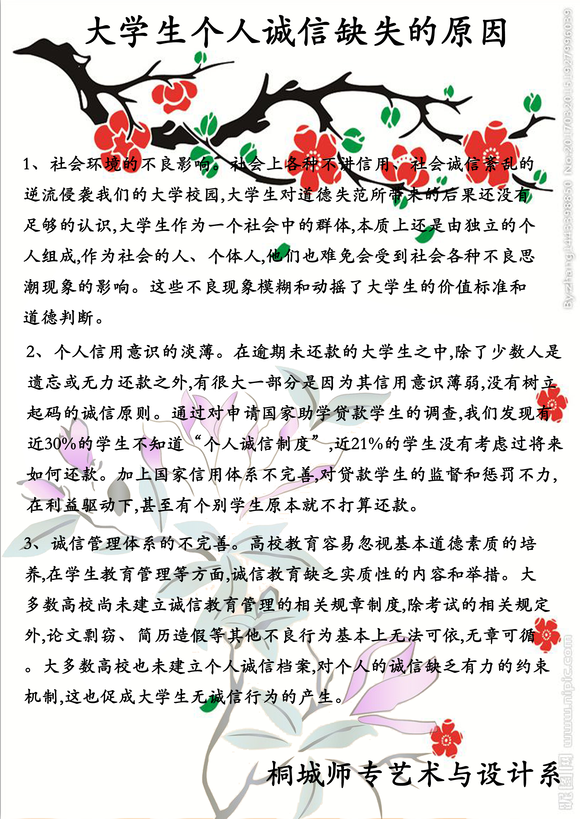 大学生个人诚信缺失的原因
1、社会环境的不良影响。社会上各种不讲信用、社会诚信紊乱的
逆流侵袭我们的大学校园,大学生对道德失范所带来的后果还没有
足够的认识,大学生作为一个社会中的群体,本质上还是由独立的个
人组成,作为社会的人、个体人,他们也难免会受到社会各种不良思
潮现象的影响。这些不良现象模糊和动摇了大学生的价值标准和
道德判断。
2、个人信用意识的淡薄。在逾期未还款的大学生之中,除了少数人是
遗忘或无力还款之外,有很大一部分是因为其信用意识薄弱,没有树立
起码的诚信原则。通过对申请国家助学贷款学生的调查,我们发现有
近30%的学生不知道“个人诚信制度”,近21%的学生没有考虑过将来
如何还款。加上国家信用体系不完善,对贷款学生的监督和惩罚不力,
在利益驱动下,甚至有个别学生原本就不打算还款。
3、诚信管理体系的不完善。高校教育容易忽视基本道德素质的培
养,在学生教育管理等方面,诚信教育缺乏实质性的内容和举措。大
多数高校尚未建立诚信教育管理的相关规章制度,除考试的相关规定
外,论文剽窃、简历造假等其他不良行为基本上无法可依,无章可循
。大多数高校也未建立个人诚信档案,对个人的诚信缺乏有力的约束
机制,这也促成大学生无诚信行为的产生。
桐城师专艺术与设计系
昵图网 www.nipic.com